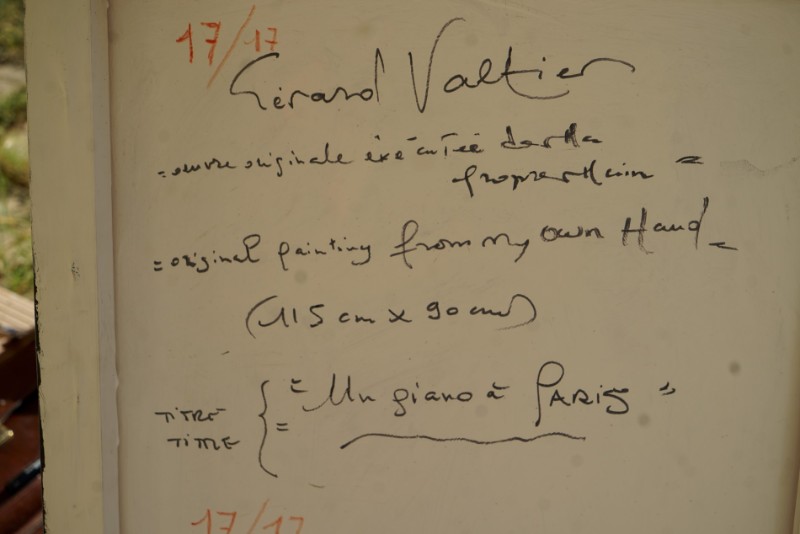 17/17
Gérard Valtier
= œuvre originale éxécutée de Ma
propre Main =
= original painting from my own Hand =
(115 cm x 90 cm)
TITRE { = "Un piano à PARIS"
TITTLE =
17/17